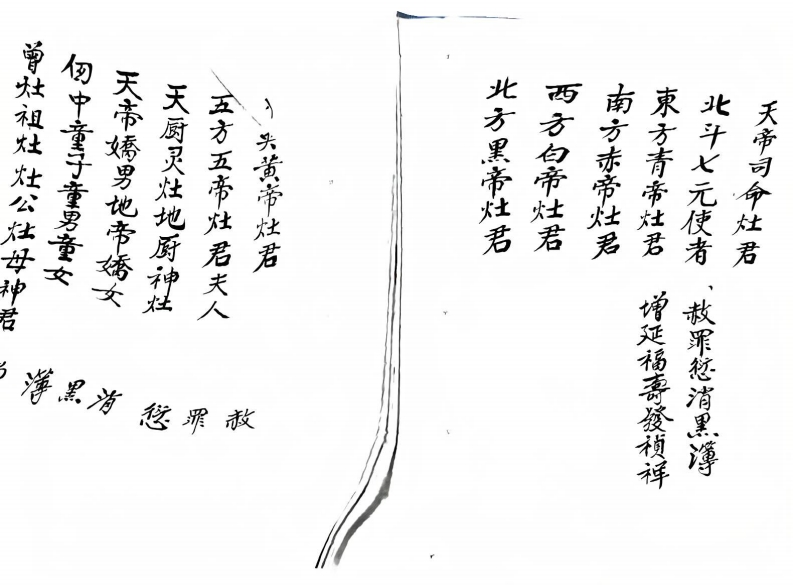 天帝司命灶君
北斗七元使者、赦罪愆消黑簿
東方青帝灶君 增延福壽發禎祥
南方赤帝灶君
西方白帝灶君
北方黑帝灶君
黄帝灶君
五方五帝灶君夫人
天厨灵灶地厨神灶
天帝嬌男地帝嬌女
中童子童男童女
曾灶祖灶灶公灶母神君
赦罪愆消黑簿